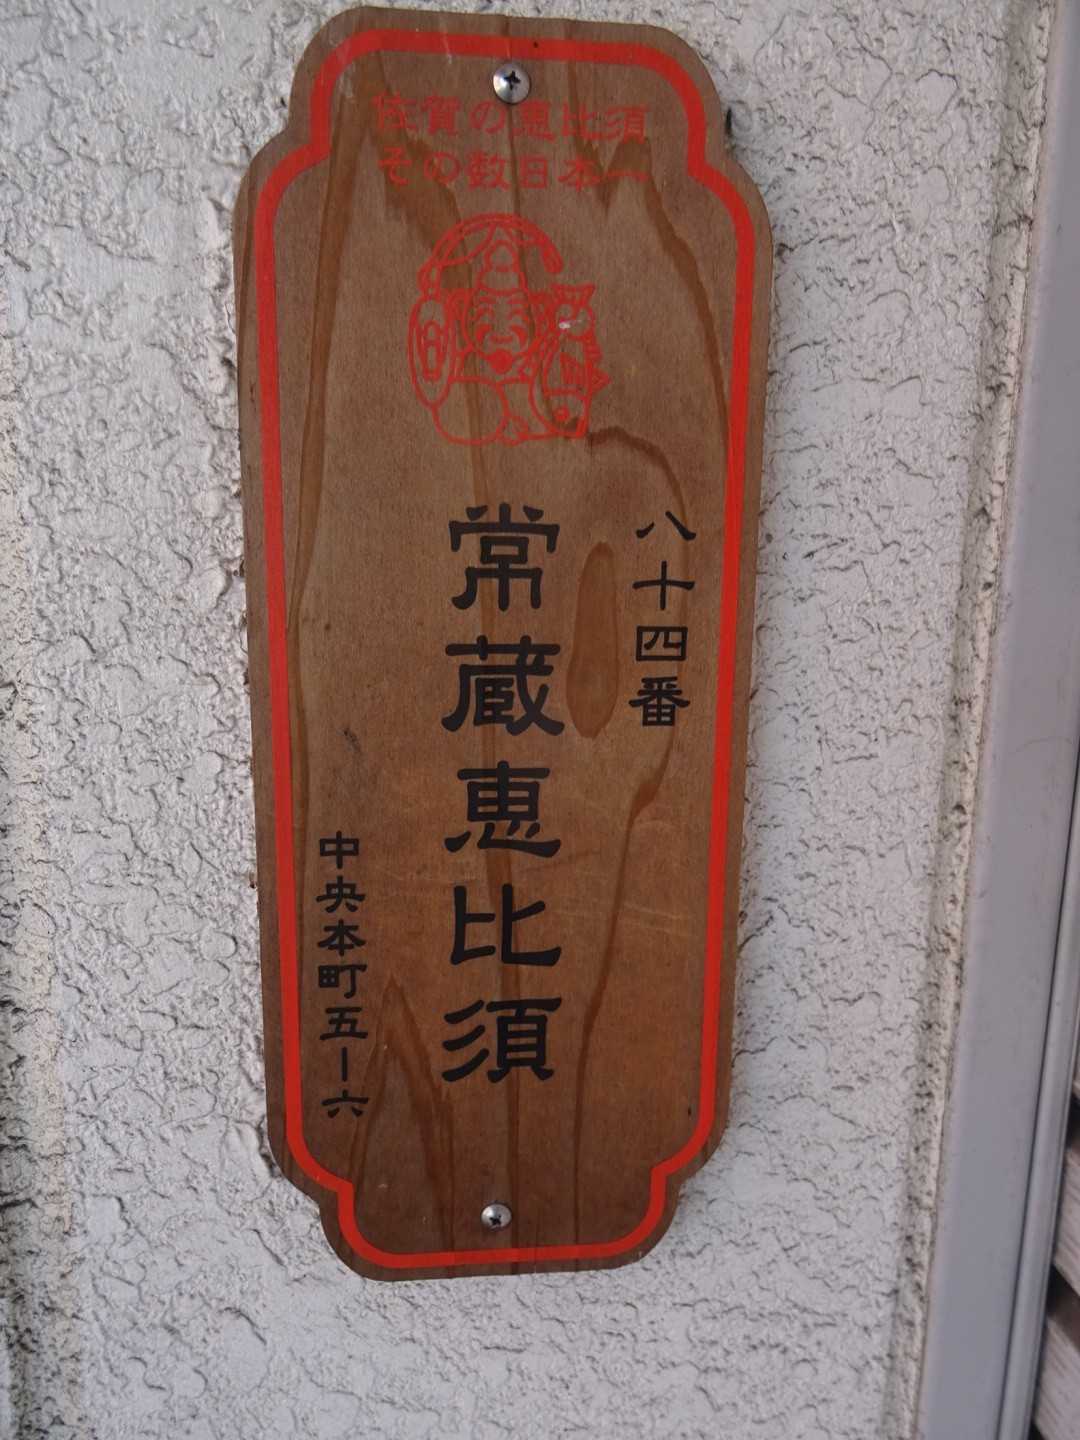 佐賀の恵比須
その数日本一
八十四番
常蔵恵比須
中央本町五ー六